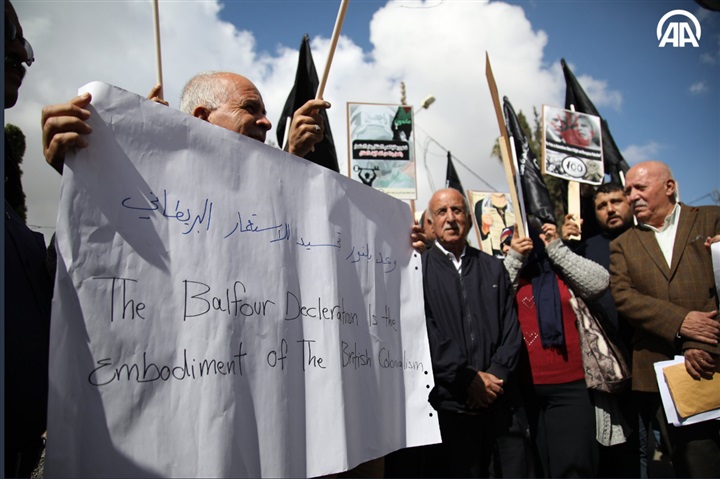 وعد بلفور تجسيد للاستعمار البريطاني
The Balfour Decleration Is the
Embodiment of The British Colonialism
100
AA